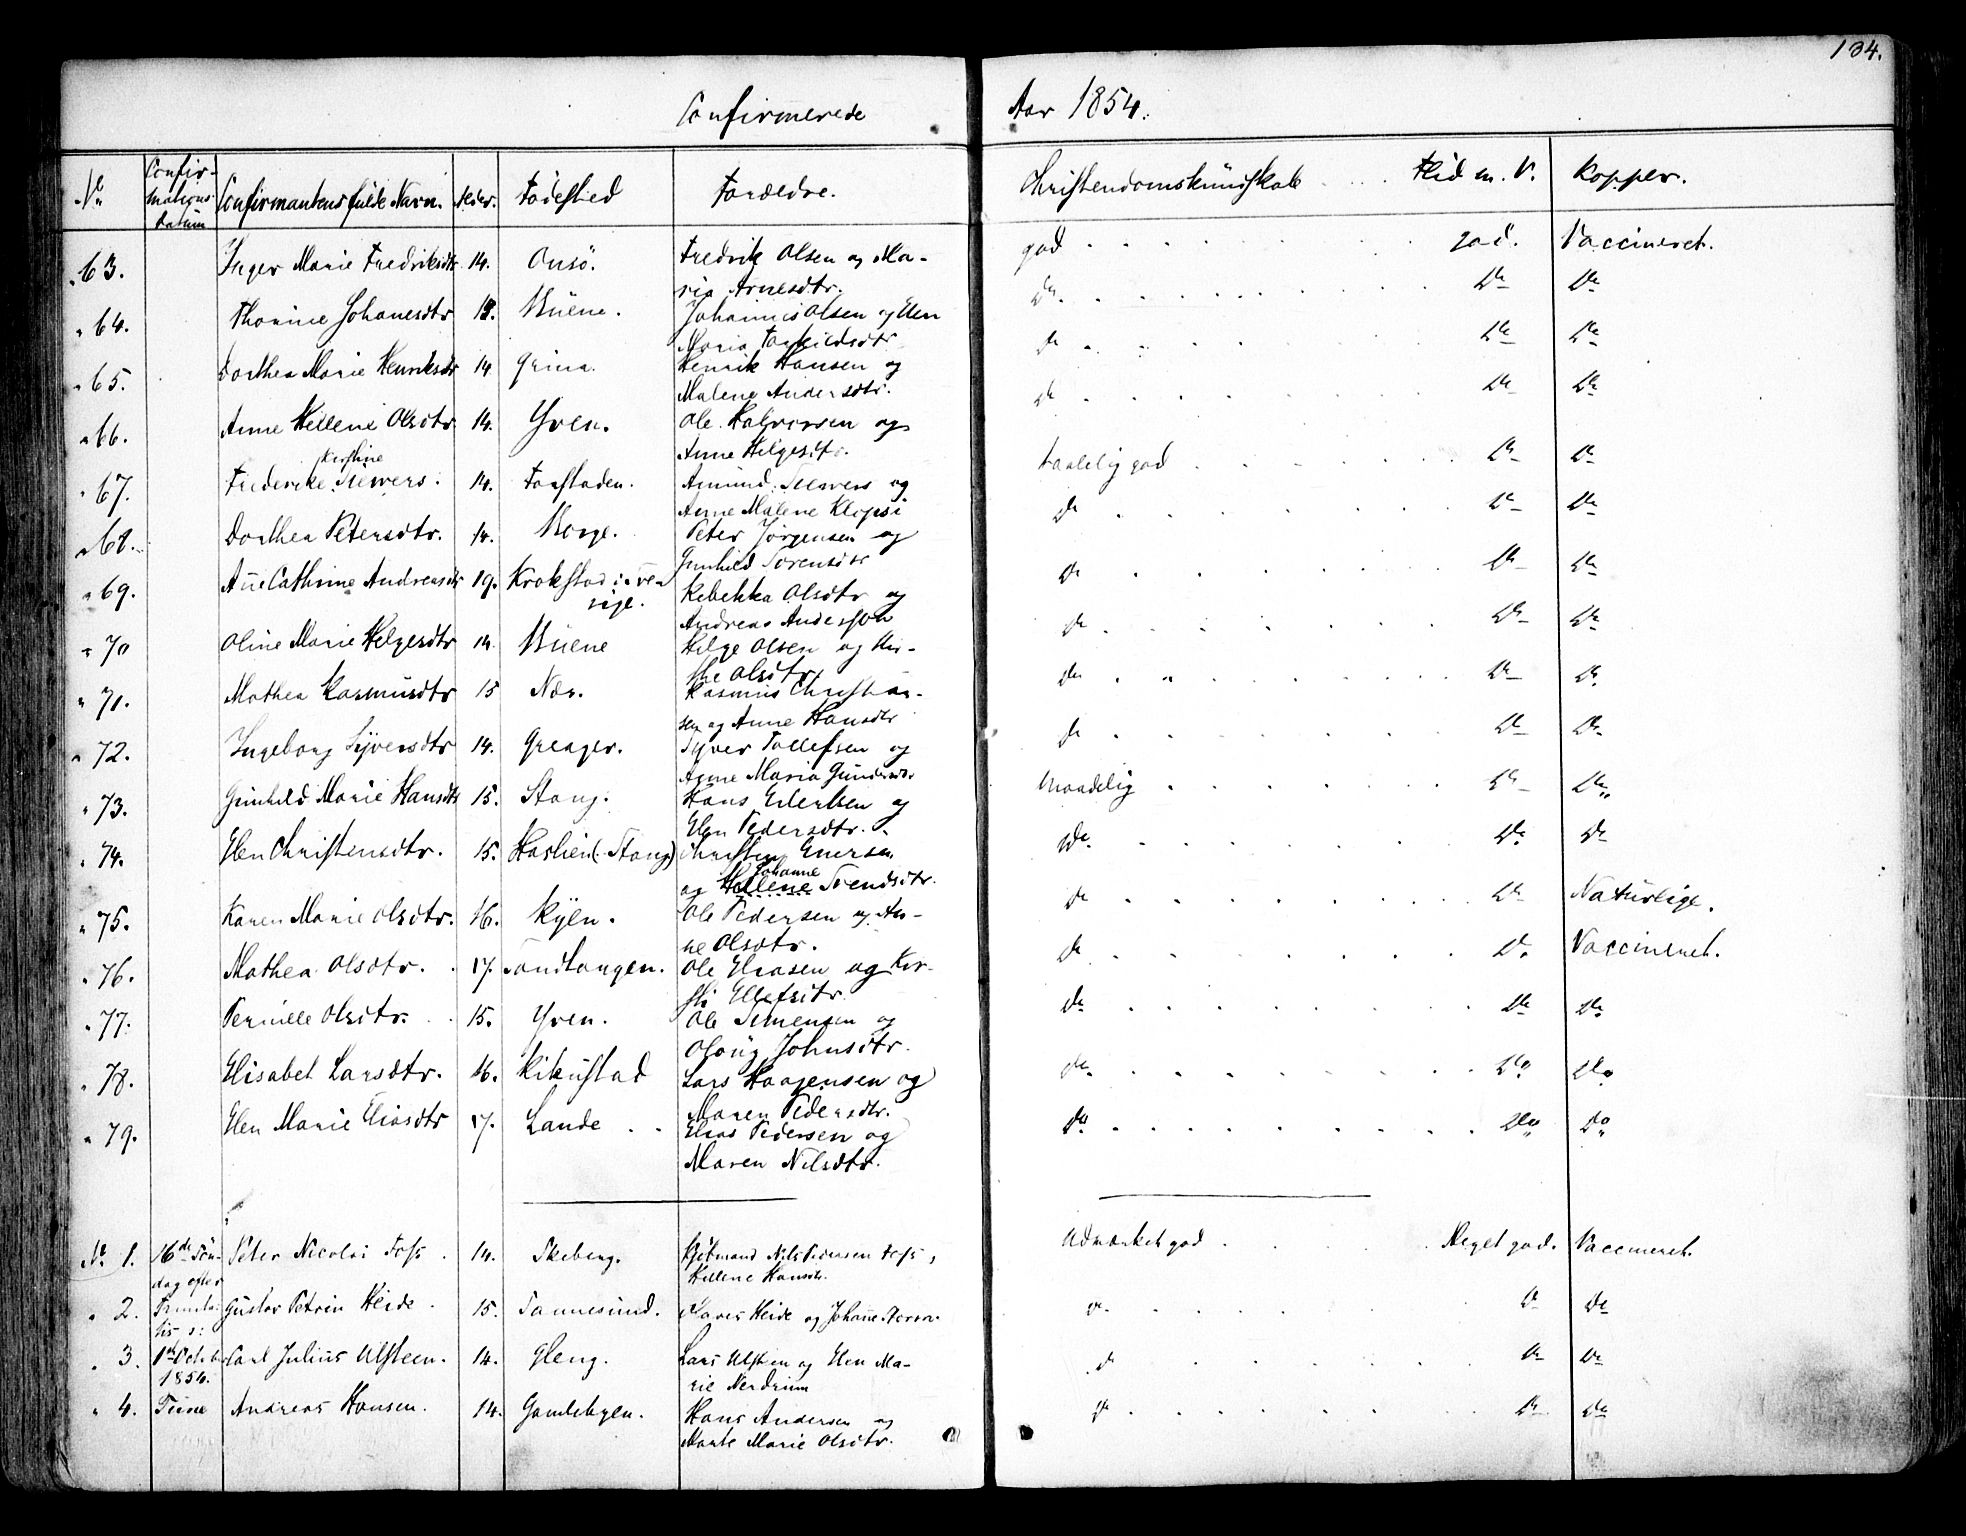 134.
Confirmerede Aar 1854.
No Confirmations Datum Confirmantens fulde Navn. Alder. Fødested Forældre. Christendomskundskab Flid m. V. Kopper.
" 63. Inger Marie Fredriksdtr 14. Onsö. Fredrik Olsen og Ma- god god. Vaccineret.
ria Arnesdtr.
" 64. Thorine Johanesdtr Johannis Olsen og Elen Do Do Do
Maria
" 65. Dorthea Marie Henriksdtr 14 Henrik Hansen og Do Do Do
Malene Andersdtr.
" 66. Anne Hellene Olsdtr 14. Yven. Ole Halvorsen og Do Do Do
Anne Helgesdtr.
Kirstine
" 67. Frederike Siewers. 14. Torstaden. Amund Siewers og taalelig god Do Do
Anne Malene
" 68. Dorthea Petersdtr. 14. Borge. Peter Jörgensen og Do Do Do
Gunhild Sorensdtr
" 69. Ane Cathrine Andreasdtr 19. Krokstad i Sve- Rebekka Olsdtr og Do Do Do
rige. Andreas Andersson
" 70 Oline Marie Helgesdtr 14. Helge Olsen og Kir- Do Do Do
sthe Olsdtr
" 71. Mathea Rasmusdtr 15 Næs. Rasmus Christian- Do Do Do
sen og Anne Hansdtr
" 72. Ingeborg Syversdtr 14. Greager. Syver Tollefsen og Do Do Do
Anne Maria Gundersdtr
" 73. Gunhild Marie Hansdtr 15. Stang. Hans Eilertsen og maadelig Do Do
Elen Pedersdtr.
" 74. Elen Christensdtr. 15. Haslien (Stang) Christen Enersen Do Do Do
Johanne
og Hellene Svendsdtr.
" 75. Karen Marie Olsdtr. 16. Kyen. Ole Pedersen og An- Do Do Naturlige.
ne Olsdtr.
" 76. Mathea Olsdtr. 17. Sandtangen. Ole Eliasen og Kir- Do Do Vaccineret.
sti Ellefsdtr.
" 77. Pernille Olsdtr. 15. Yven. Ole Simensen og Do Do Do
Olaug Johnsdtr.
" 78. Elisabet Larsdtr. 16. Rikustad Lars Haagensen og Do Do Do
Maren Pedersdtr.
" 79. Elen Marie Eliasdtr 17. Lande Elias Pedersen og Do Do Do
Maren Nilsdtr.
No 1. 16de Søn- Peter Nicolai Foss 14. Skeberg. Nils Pedersen Foss, Udmærket god Meget god. Vaccineret.
dag efter Hellene Hansdtr.
" 2. Trinita- Gustav Petrin Heide 15. Sannesund. Heide og Johane Do Do Do
tis
" 3. 1st October Carl Julius Ulsteen. 14. Gleng. Lars Ulsteen og Elen Ma- Do Do Do
1854. rie Nerdrum
" 4. Tune Andreas Hansen. 14. Gamlebyen. Hans Andersen og Do Do Do
Marte Marie Olsdtr.